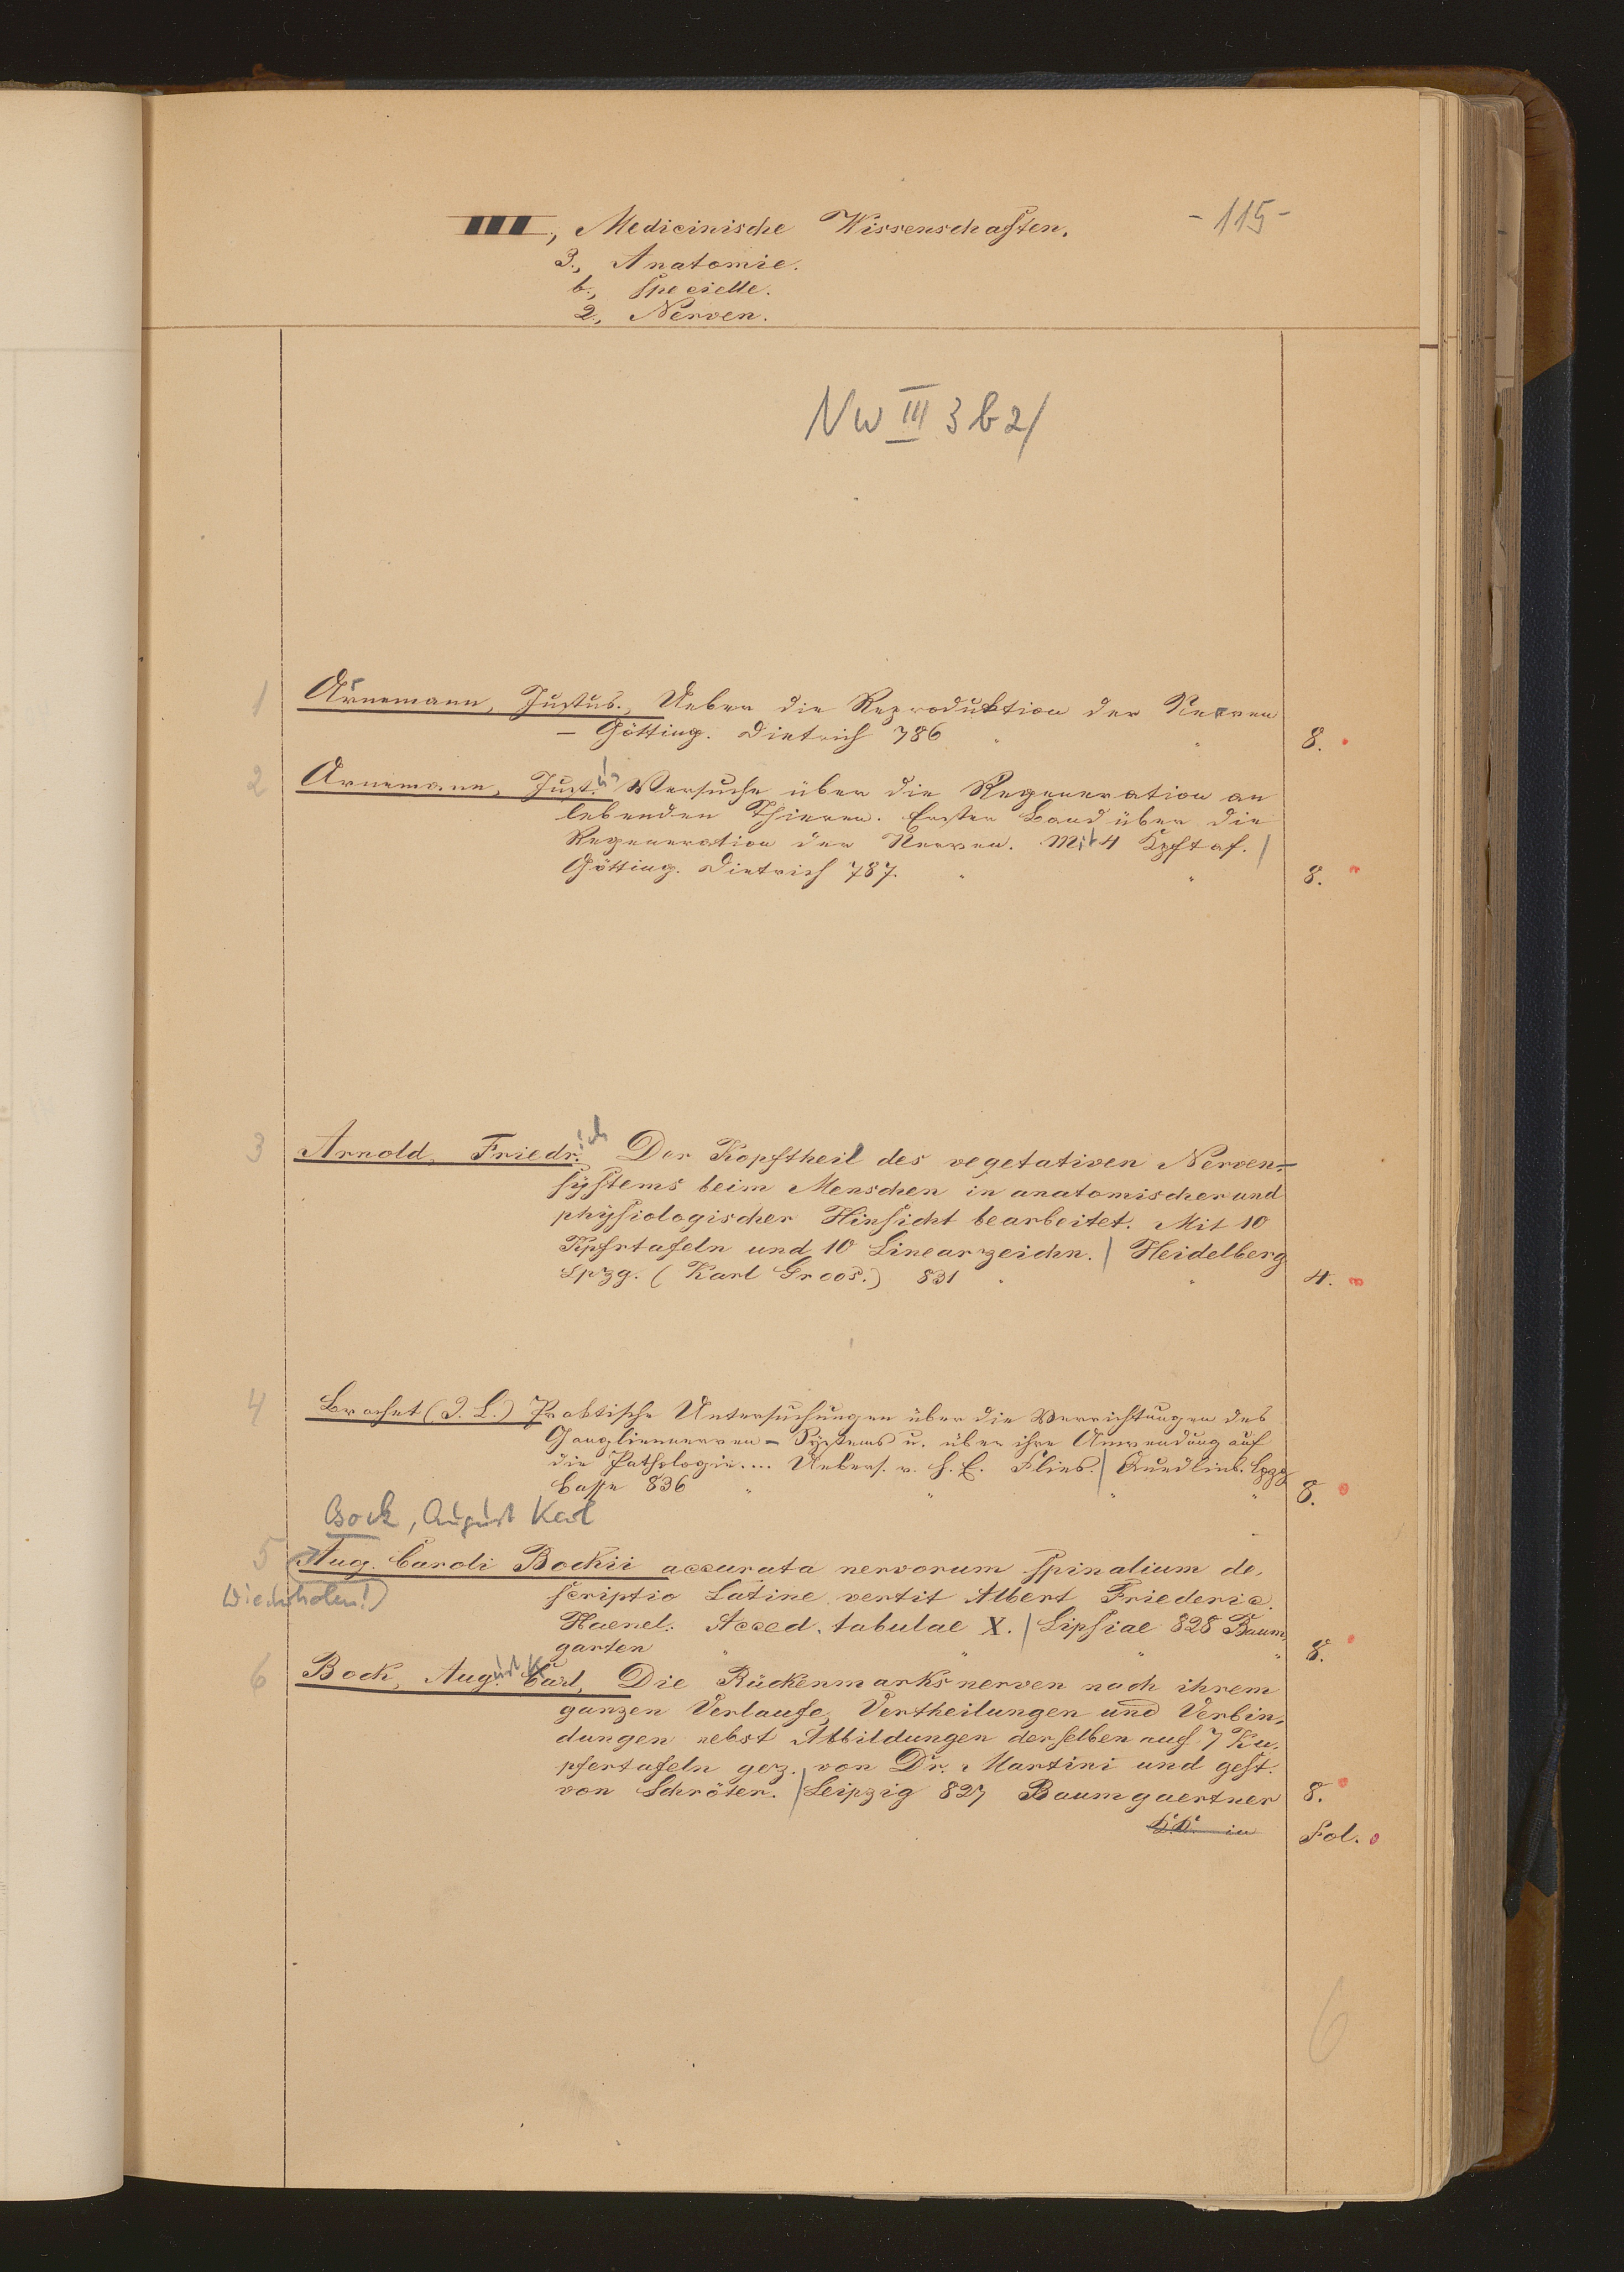 - 115 -
III., Medicinische Wissenschaften.
3., Anatomie.
b., specielle.
2., Nerven.
NW III 3 b 2/
1 Arnemann, Justus., Ueber die Reproduktion der Nerven
– Götting. Dietrich 786 " " 8.
2 Arnemann, Just. us Versuche über die Regeneration an
lebenden Thieren. Erster Band über die
Regeneration der Nerven. Mit 4 Kpftaf. |
Götting. Dietrich 787. " " 8.
3 Arnold, Friedr. ich Der Kopftheil des vegetativen Nerven-
systems beim Menschen in anatomischer und
physiologischer Hinsicht bearbeitet. Mit 10
Kpfrtafeln und 10 Linearzeichn. | Heidelberg
Lpzg. (Karl Groos.) 831 " " 4.
4 Brachet (J. L.) Praktische Untersuchungen über die Verrichtungen des
Gangliennerven-Systems u. über ihre Anwendung auf
die Pathologie.... Uebers. v. H. E. Flies. | Quedlinb. Lpzg
Basse 836 " " " " 8.
Bock, August Karl
5 Aug. Caroli Bockii accurata nervorum spinalium de-
Wiederholen! scriptio Latine vertit Albert Friederic.
Haenel. Acced. tabulae X. | Lipsiae 828 Baum-
garten " " " " 8.
6 Bock, Aug. ust K Carl, Die Rückenmarksnerven nach ihrem
ganzen Verlaufe, Vertheilungen und Verbin-
dungen nebst Abbildungen derselben auf 7 Ku-
pfertafeln gez. von Dr. Martini und gest.
von Schröter. | Leipzig 827 Baumgaertner 8.
in Fol.
6